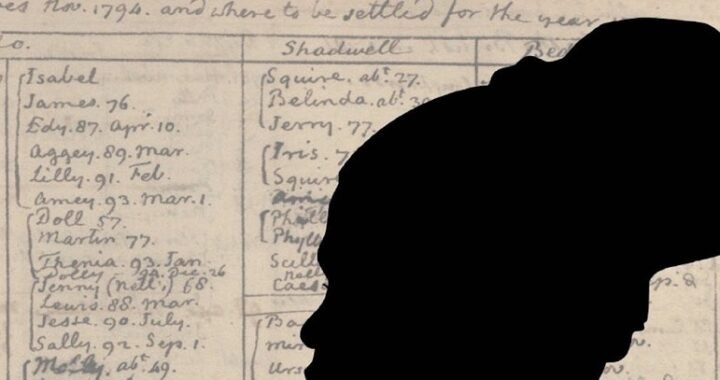 Nov. 1794. and where to be settled for the year
o.
Isabel
James. 76.
Edy. 87. Apr. 10.
Aggey. 89. Mar.
Lilly. 91. Feb.
Amey. 93. Mar. 1.
Doll 57.
Martin 77.
Thenia. 93. Jan
Dolly 94. Dec. 26
Jenny (Nell's) 68.
Lewis. 88. Mar.
Jesse. 90. July.
Sally. 92. Sep. 1.
Molly. abt. 49.
Shadwell
Squire. abt. 27.
Belinda. abt.
Jerry. 77.
Iris. 7
Squir
Phill
Phyll
Scill
Caes
Ba
Urs
Bed